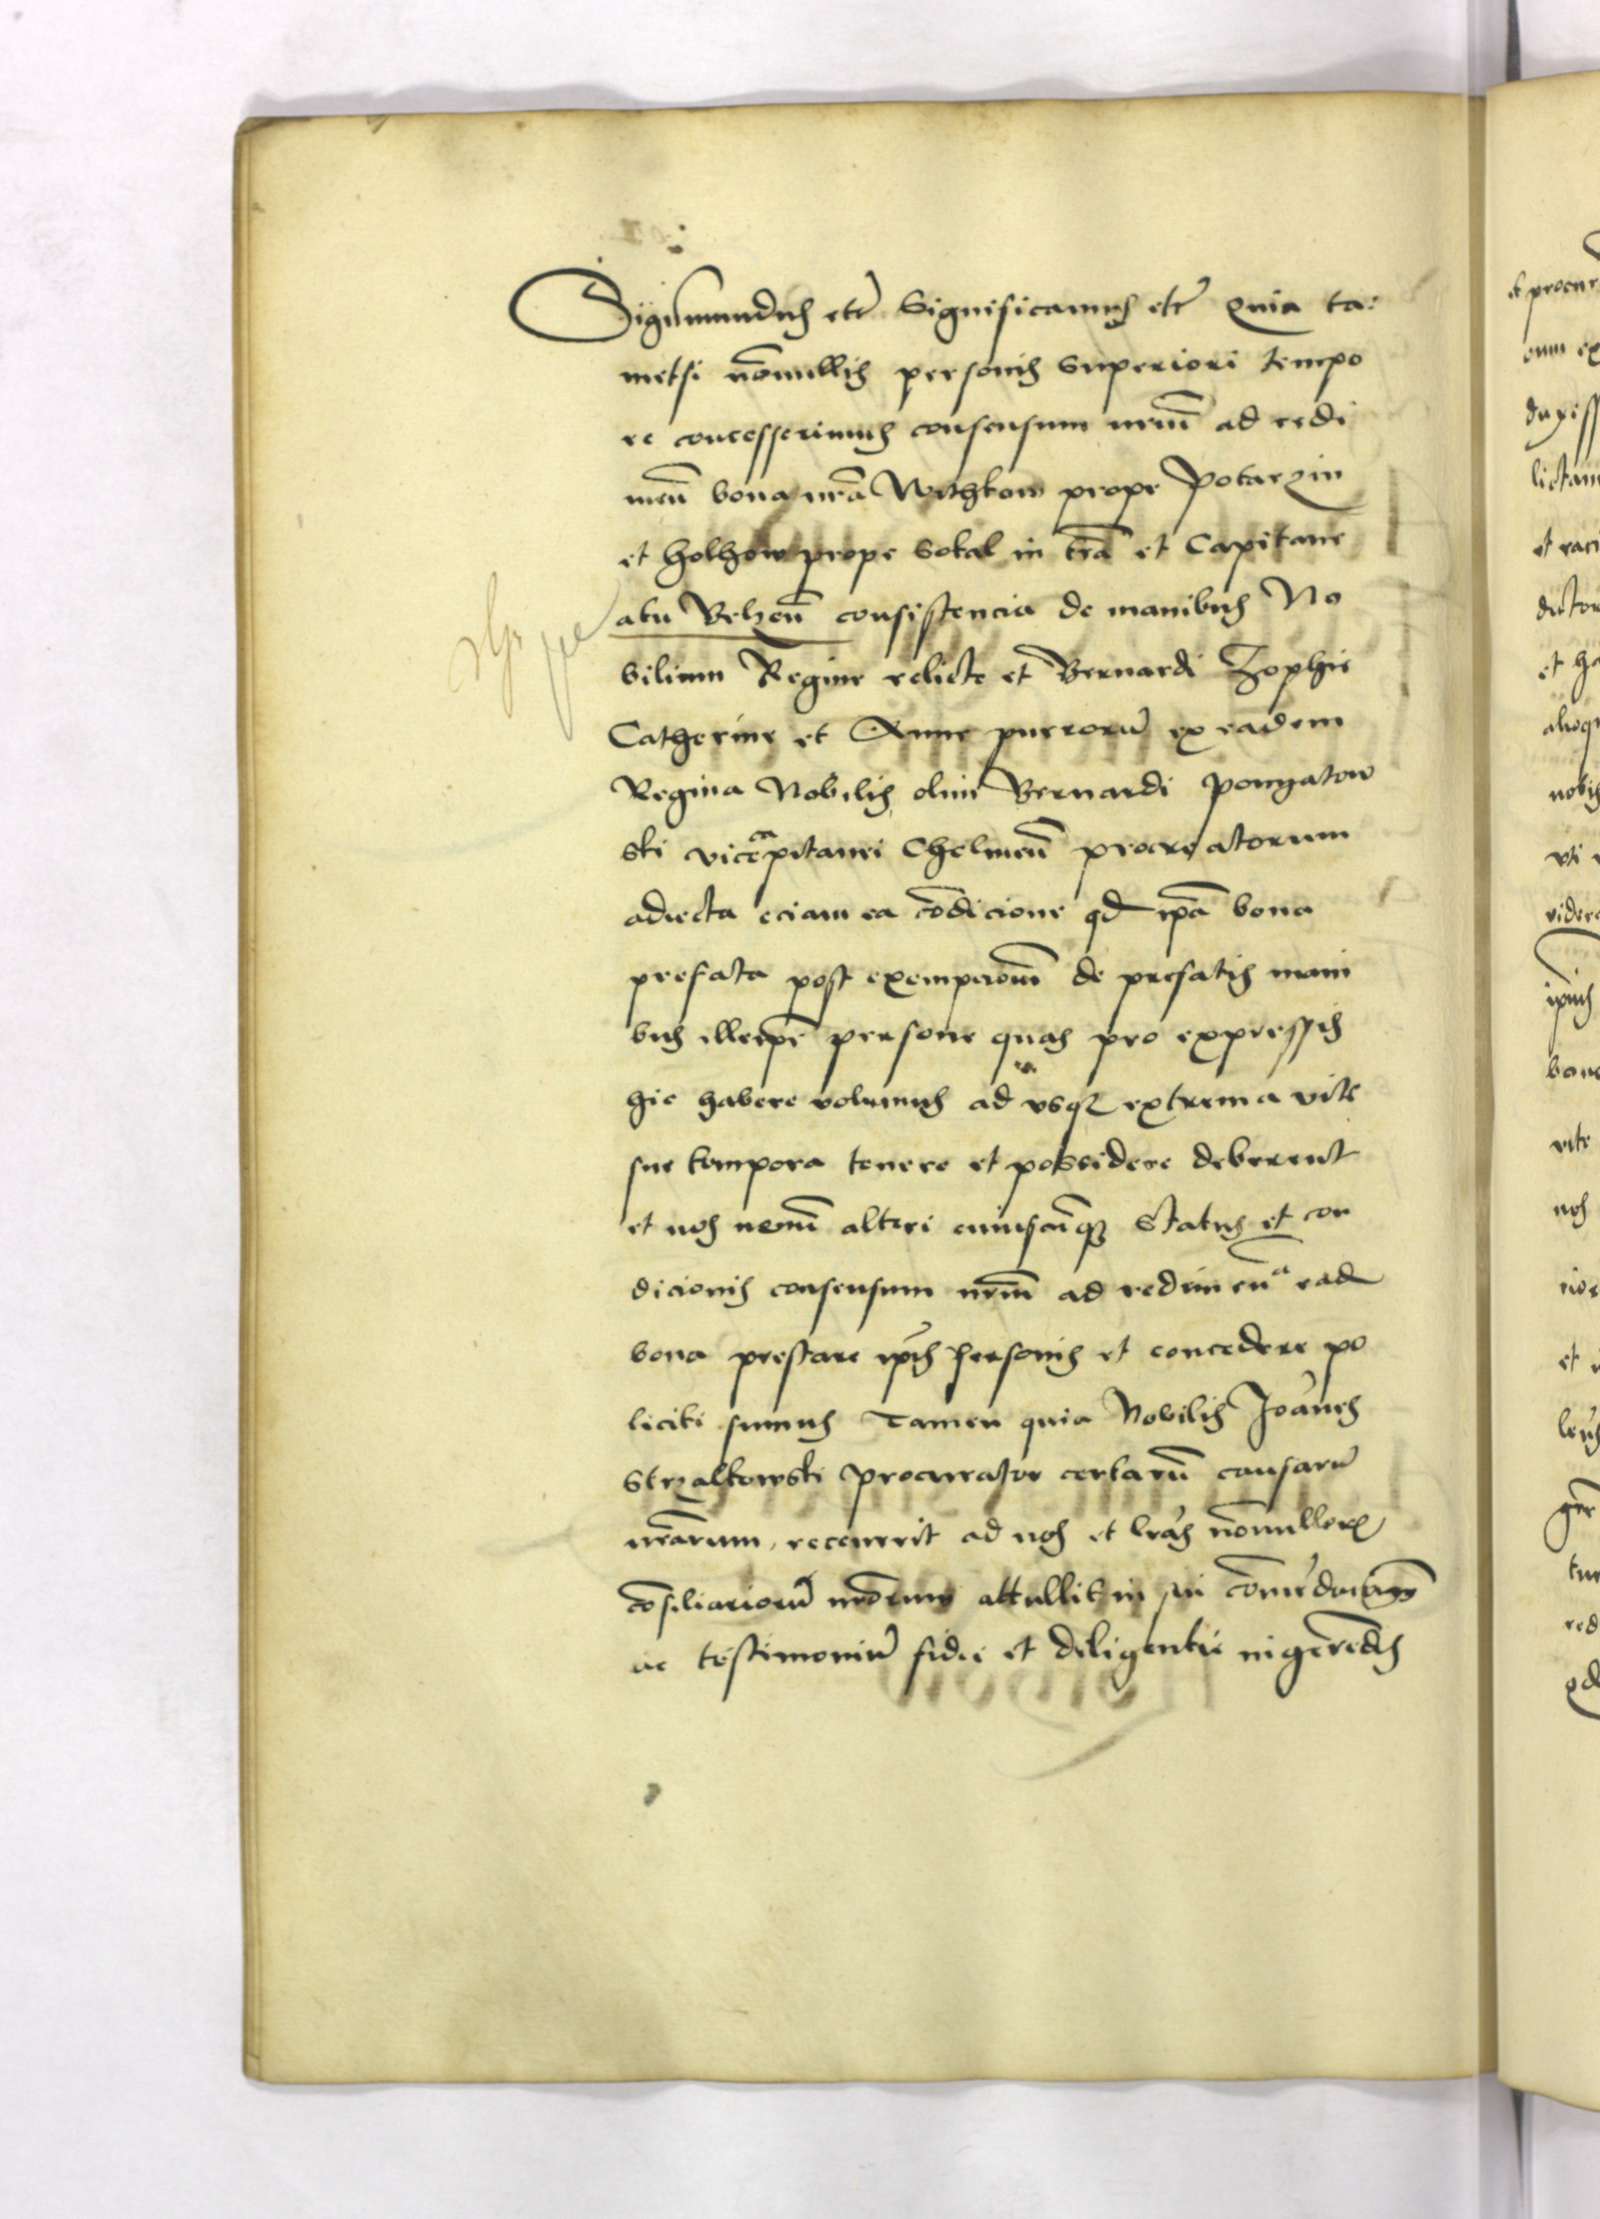 Sigismundus etc̃ Significamus etc̃ Quia ta:
metsi nõnullis personis superiori tempo
re concesserimus consensum nr̃m ad redi
meñ bona nr̃a Withkow prope Potarzin
et holhow prope Sokal in tr̃a et Capitane
atu Belzeñ consistencia de manibus No
bilium Regine relicte et Bernardi Zophie
Catherine et Anne puerorũ ex eadem
Regina Nobilis olim Bernardi
ski vicecapitanei Chelmeñ procreatorum
adiecta eciam ea cõdicione qd ip̃a bona
prefata post exempcionẽ de prefatis mani
bus illeipẽ persone quas pro expressis
hic habere volumus ad usq extrema vite
sue tempora tenere et possidere deberent
et nos nemĩ alteri cuiuscũq Status et con
dicionis consensum nr̃m ad redimeña ead
bona prestare ip̃is personis et concedere po
liciti sumus Tamen quia Nobilis Joãnes
Strzalkowski procurator certarũ causarũ
nr̃arum recurrit ad nos et lr̃as nõnullorũ
cõsiliariorũ nr̃orum attullit in sui
ac testimoniũ fidei et diligentie in gerẽdis